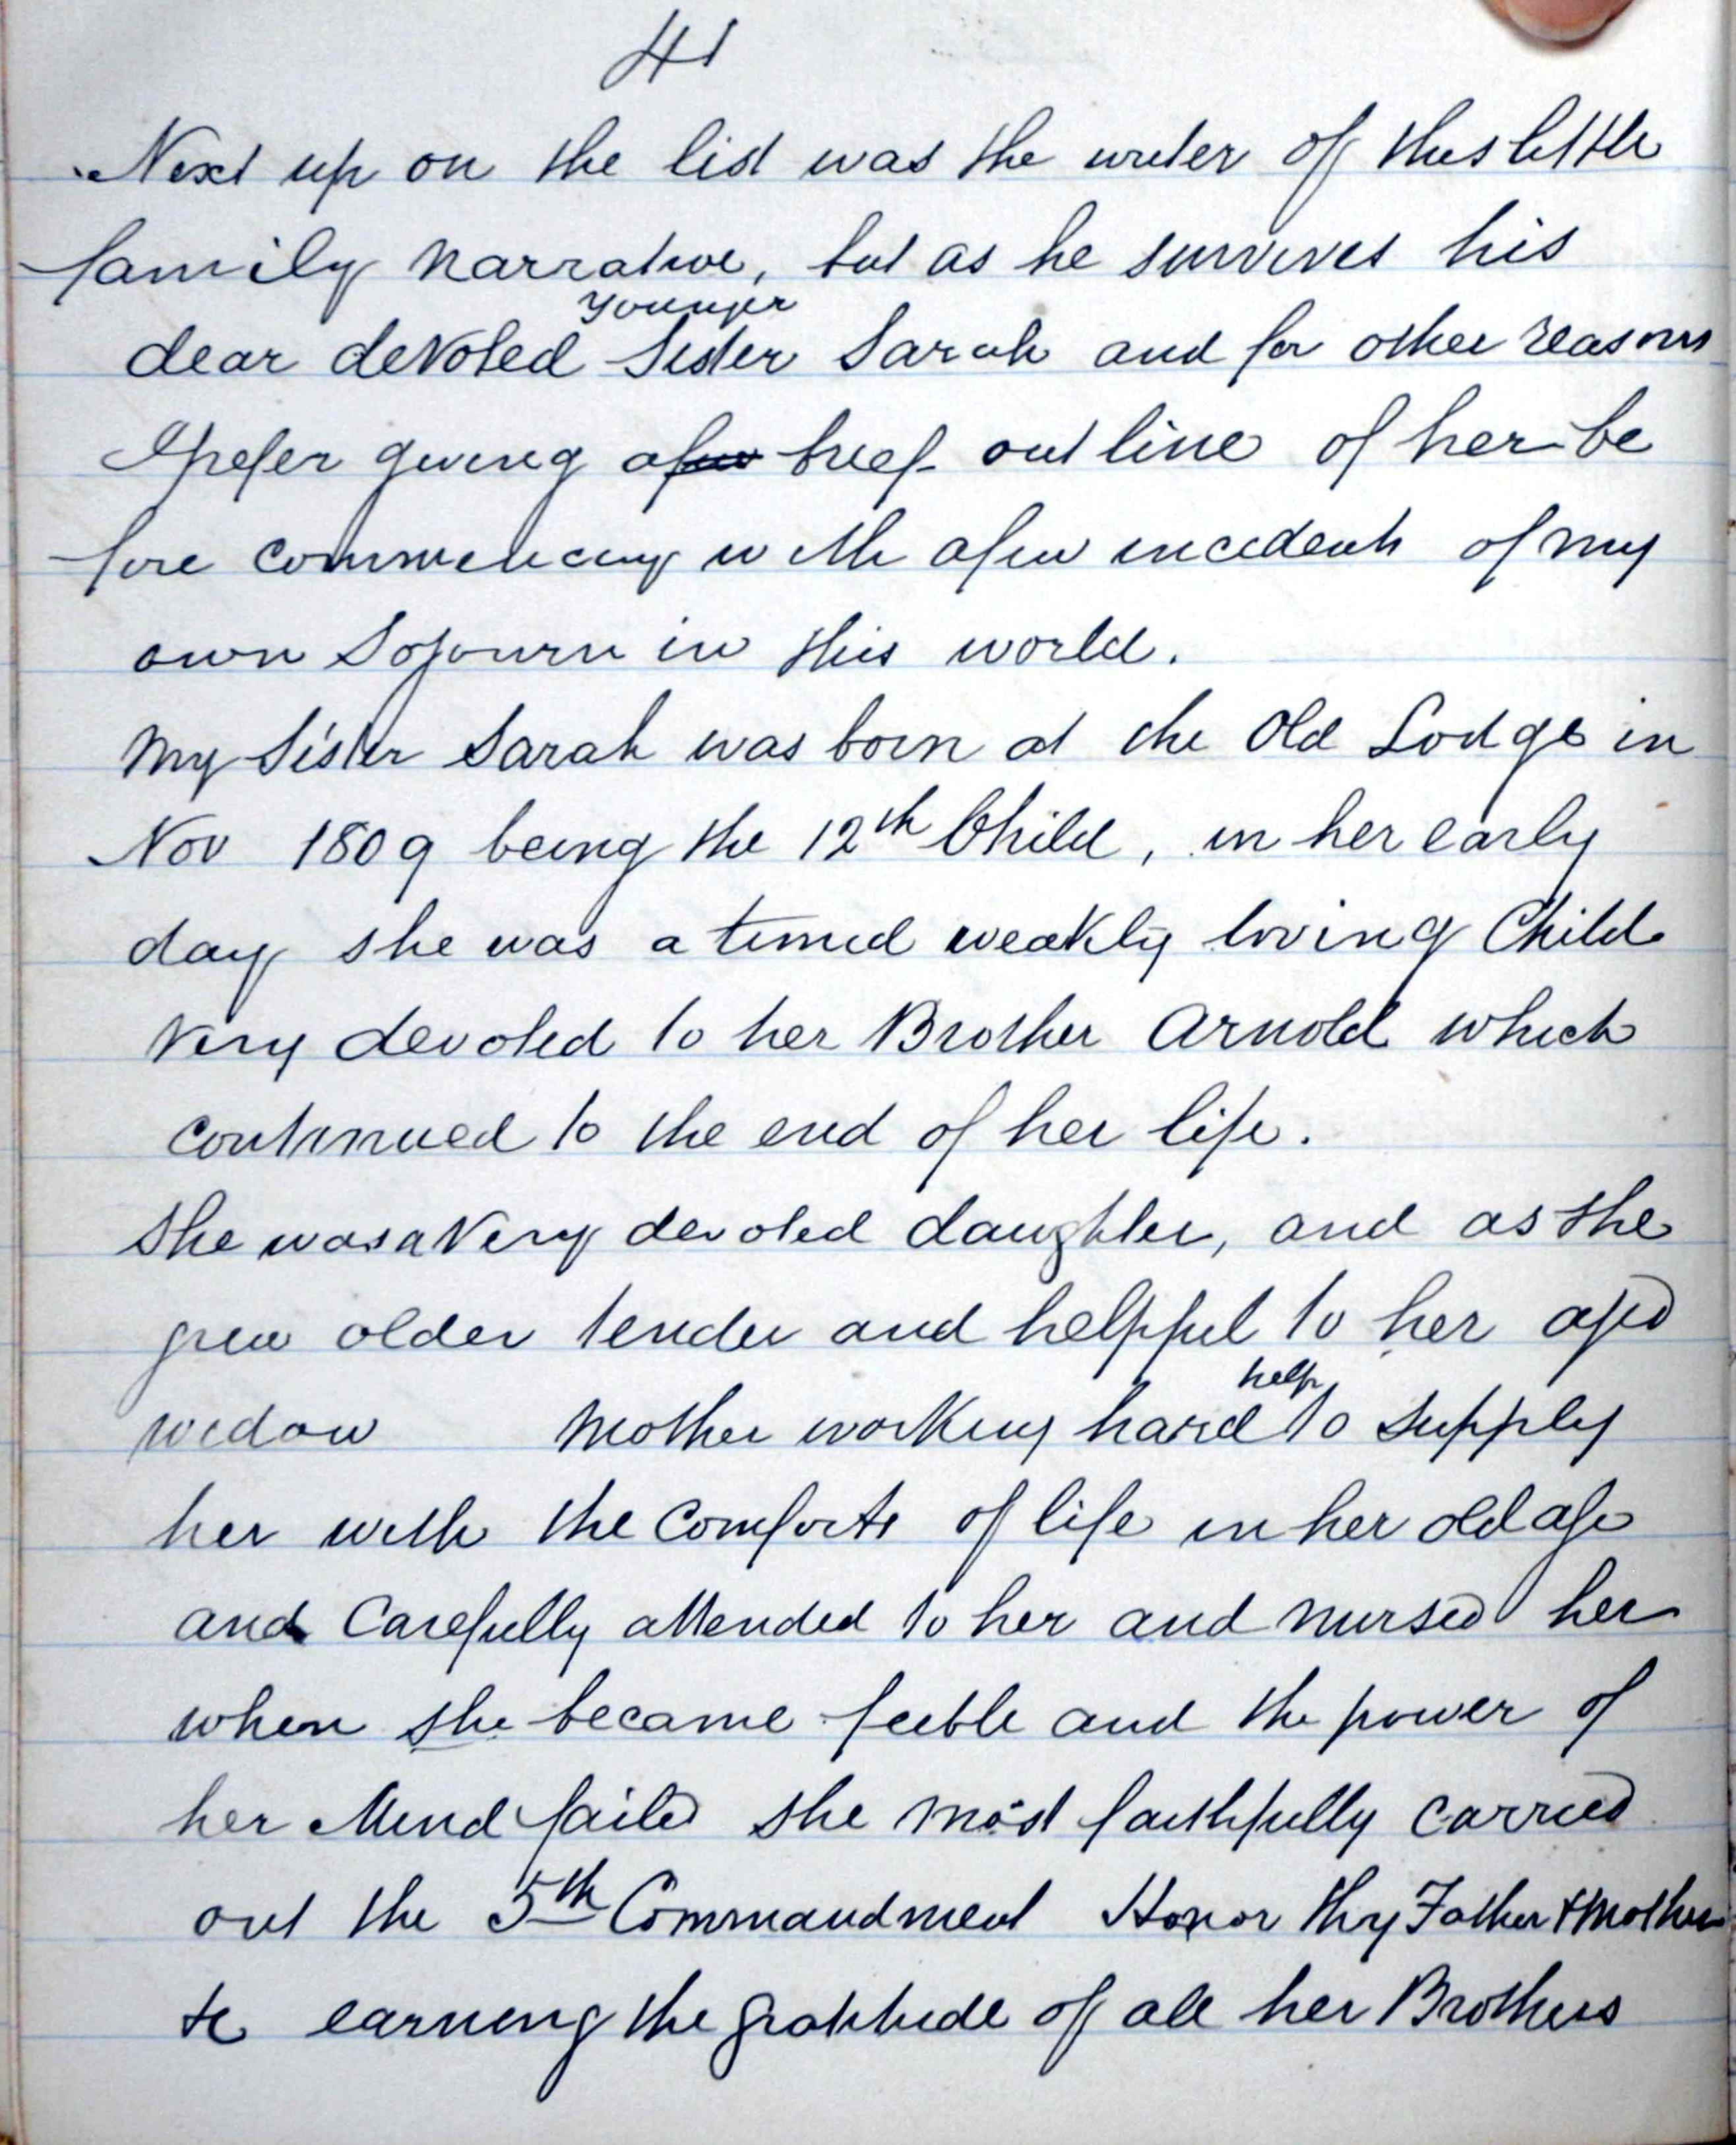 41
Next up on the list was the writer of this little
family narrative, but as he survives his
younger
dear devoted Sister Sarah and for other reasons
I prefer giving a few brief out line of her be
fore commencing with a few incidents of my
own Sojourn in this world.
My Sister Sarah was born at the Old Lodge in
Nov 1809 being the 12th Child, in her early
day she was a timid weakly loving Child
very devoted to her Brother Arnold which
continued to the end of her life.
She was a very devoted daughter, and as she
grew older tender and helpful to her aged
help
widow Mother working hard to supply
her with the comforts of life in her old age
and Carefully attended to her and nursed her
when she became feeble and the power of
her Mind failed she most faithfully carried
out the 5th Commandment Honor thy Father & Mother
&c earning the gratitude of all her Brothers